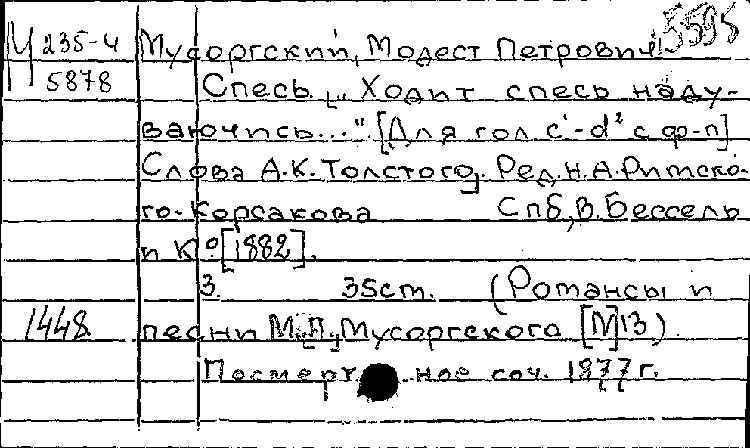 М 235-4 Мусоргский, Модест Петрович 5595
5878 Спесь. „Ходит спесь наду-
ваючись..." [Для гол c'-d² с ф-п]
Слова А.К.Толстого. Ред. Н.А.Римско-
го-Корсакова Спб, В.Бессель
и К° [1882].
3. 35ст. (Романсы и
1448 песни М.П. Мусоргского [№]13)
Посмертное соч. 1877 г.